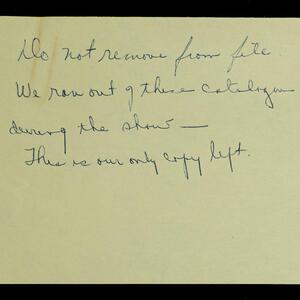 Do not remove from file.
We ran out of these catalogues
during the show —
This is our only copy left.